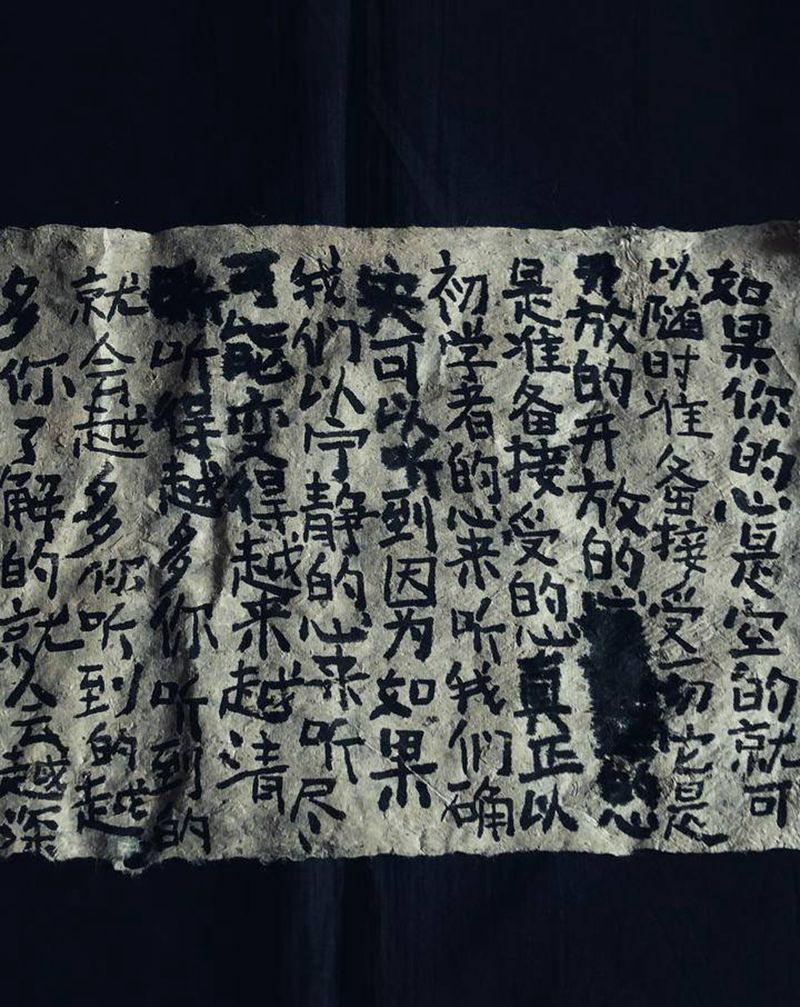 如果你的心是空的就可
以随时准备接受一切它是
开放的开放的心
是准备接受的心真正以
初学者的心来听我们确
实可以听到因为如果
我们以宁静的心来听尽
可能变得越来越清
听得越多你听到的
就会越多你听到的越
多你了解的就会越深